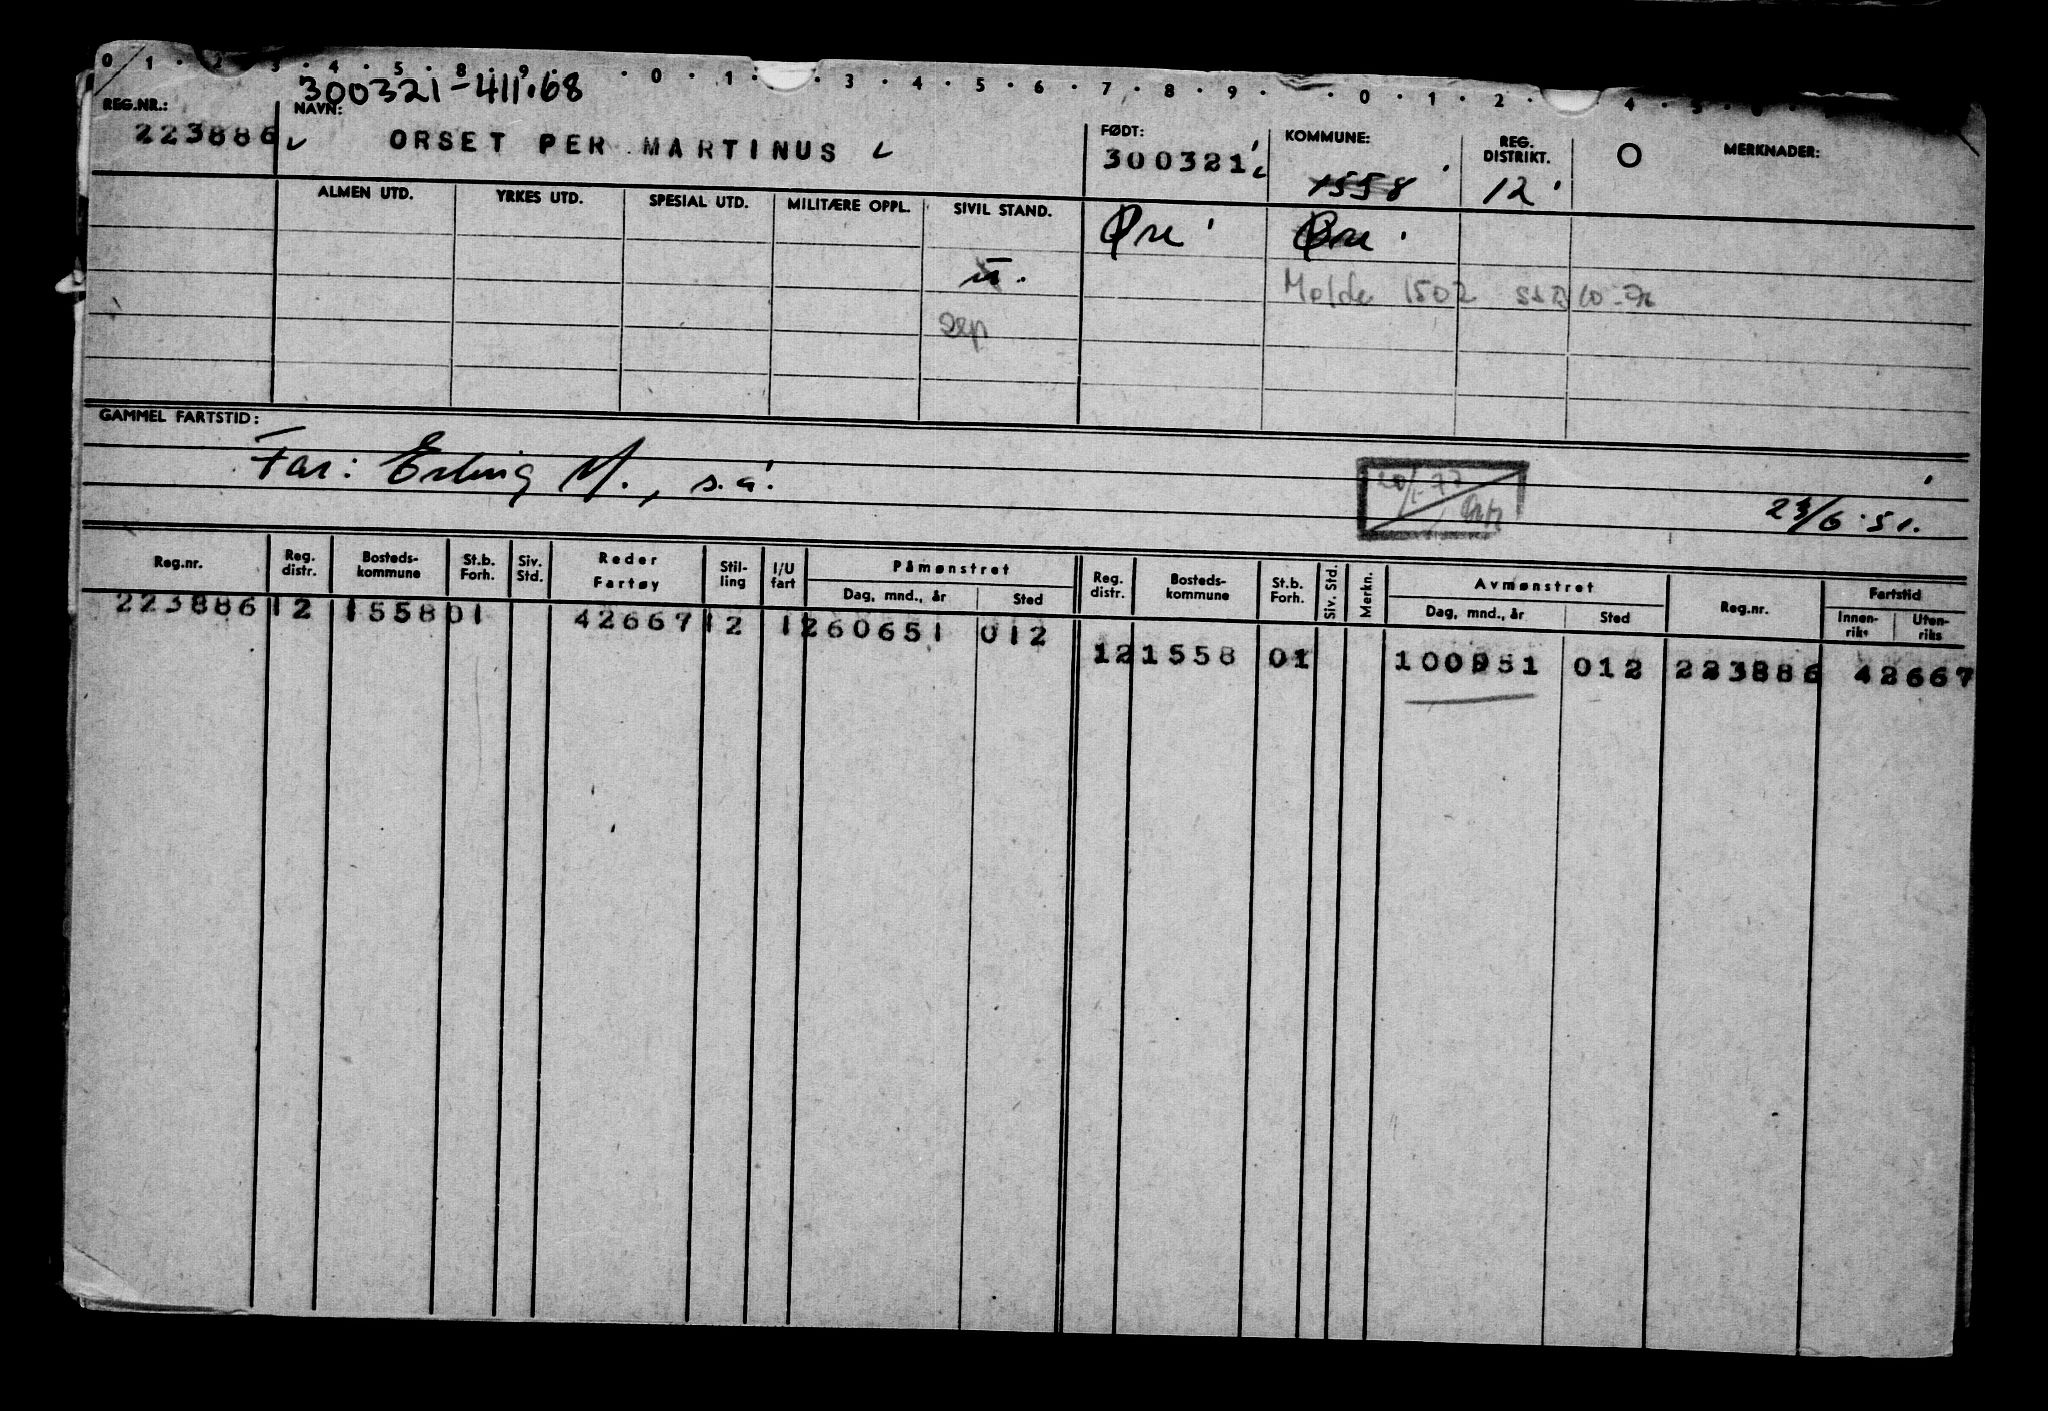 0 1 · 2 · 3 · 4 · 5 · 8 · 9 · 0 · 1 · 3 · 4 · 5 · 6 · 7 · 8 · 9 · 0 · 1 · 2 · 4 · 5 · 6
300321-411.68
REG.NR.: NAVN: FØDT: KOMMUNE: REG. DISTRIKT. O MERKNADER:
223886 ORSET PER MARTINUS 300321 1558 12
ALMEN UTD. YRKES UTD. SPESIAL UTD. MILITÆRE OPPL. SIVIL STAND. Øre Øre
u. Molde 1502
sep
GAMMEL FARTSTID:
Far: Erling M., s.a.
20/1-77
23/6.51.
Reg.nr. Reg. distr. Bosteds-kommune St.b. Forh. Siv. Std. Reder Fartøy Stil-ling I/U fart Påmønstret Reg. distr. Bosteds-kommune St.b. Forh. Siv. Std. Merkn. Avmønstret Reg.nr. Fartstid
Dag, mnd., år Sted Dag, mnd., år Sted Innen-riks Uten-riks
223886 12 1558 01 42667 12 1 260651 012
12 1558 01 100951 012 223886 42667